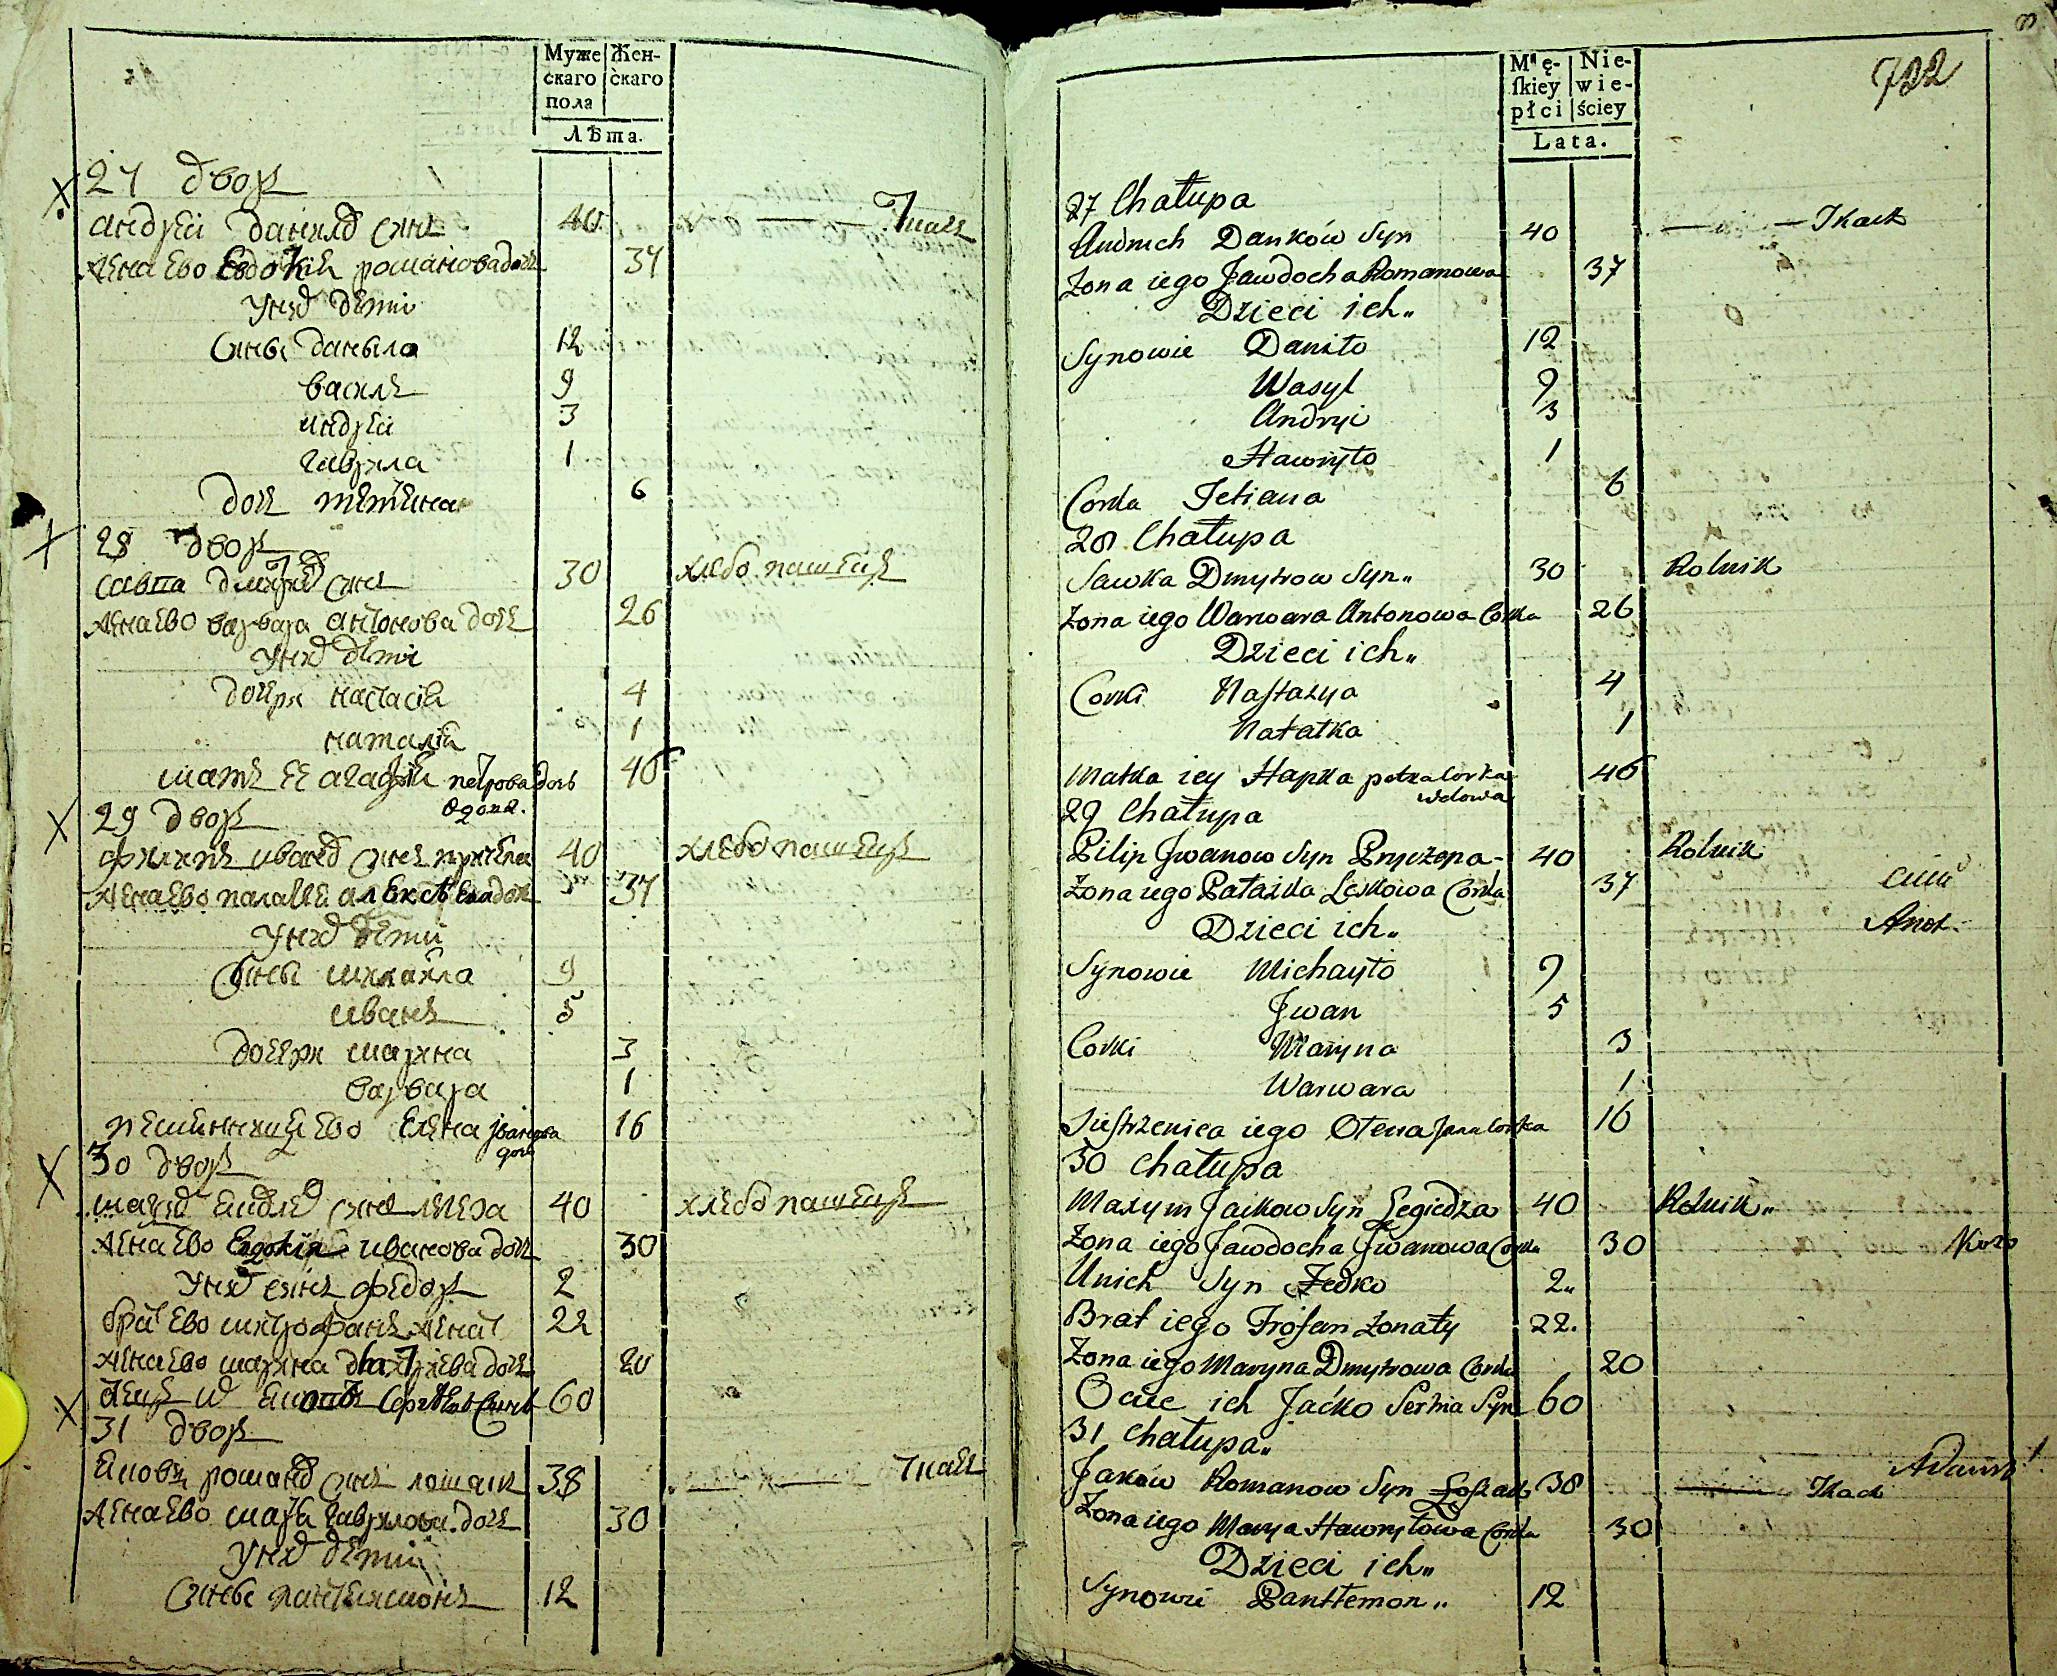 Муже
скаго
пола
Жен-
скаго
Лѣта.
27 дворъ
андрей данилов синъ 40 Ткачъ
жена ево Евдокия романова дочь 37
у них дети
сины даныло 12
василь 9
андрей 3
гаврила 1
дочь 6
28 дворъ
савка синъ 30 хлебопашецъ
жена ево варвара антонова дочь 26
у них дети
дочери настасия 4
наталия 1
мать ее агафия петрова дочь 46
вдова.
29 дворъ
филипъ иванов синъ 40 хлебопашецъ
жена ево дочь 37
у них дети
сины михайла 9
иванъ 5
дочери марина 3
варвара 1
ево елена 16
30 дворъ
синъ 40 хлебопашецъ
жена ево Евдокия иванова дочь 30
у них синъ федоръ 2
братъ ево митрофанъ женатъ 22
жена ево марина дочь 20
отецъ их 60
31 дворъ
яковъ романов синъ 38 ткачъ
жена ево гаврилова дочь 30
у них дети
сины пантелимонъ 12
Męskiey
płci
Nie-
wie-
ściey
Lata.
722
27 Chałupa
Danków Syn 40 Tkacz
Zona iego Jawdocha Romanowa 37
Dzieci ich"
Synowie Daniło 12
Wasyl 9
Andryi 3
Hawryło 1
Corka Tetiana 6
28 Chałupa
Sawka Dmytrow Syn" 30 Rolnik
Zona iego Warwara Antonowa Corka 26
Dzieci ich"
Corki Nastazya 4
Natałka 1
Matka iey Hapka petra Corka 46
wdowa
29 Chałupa
Pilip Jwanow Syn Pryczepa - 40 Rolnik
Zona iego Pałażka Leskowa Corka 37
Dzieci ich"
Synowie Michayło 9
Jwan 5
Corki Maryna 3
Warwara 1
Siestrzenica iego Ołena Jana Corka 16
30 Chałupa
Maxym Jackow Syn Legiedza 40 Rolnik"
Zona iego Jawdocha Jwanowa Corka 30
Unich Syn Fedko 2"
Brat iego Trofan żonaty 22.
Zona iego Maryna Dmytrowa Corka 20
Ociec ich Jaćko Serhia Syn 60
31 Chałupa"
Jakow Romanow Syn Łoszak 38 Tkacz
Zona iego Marya Hawryłowa Corka 30
Dzieci ich"
Synowie Pantłemon" 12